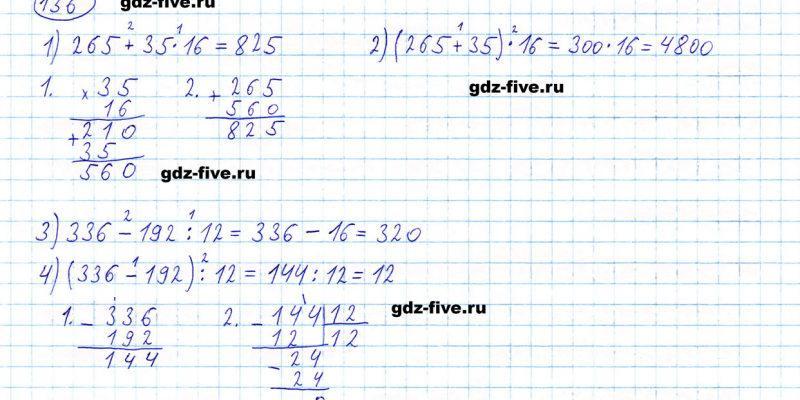 136 gdz-five.ru
1) 265 + 35 · 16 = 825
2) (265 + 35) · 16 = 300 · 16 = 4800
gdz-five.ru
1. × 35
16
+ 210
35
560
2. + 265
560
825
gdz-five.ru
3) 336 − 192 : 12 = 336 − 16 = 320
4) (336 − 192) : 12 = 144 : 12 = 12
1. − 336
192
144
2. − 144 | 12
12 | 12
− 24
24
gdz-five.ru